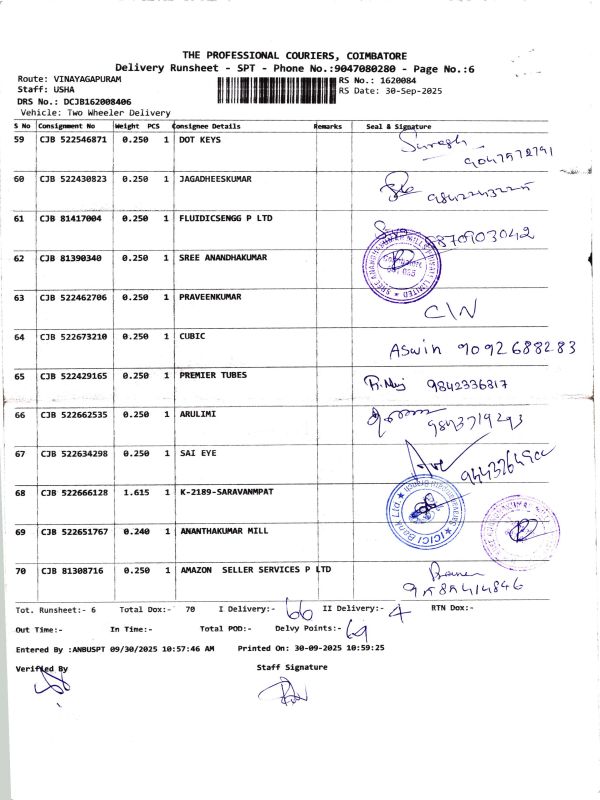 THE PROFESSIONAL COURIERS, COIMBATORE
Delivery Runsheet - SPT - Phone No.:9047080280 - Page No.:6
Route: VINAYAGAPURAM RS No.: 1620084
Staff: USHA RS Date: 30-Sep-2025
DRS No.: DCJB162008406
Vehicle: Two Wheeler Delivery
S No Consignment No Weight PCS Consignee Details Remarks Seal & Signature
59 CJB 522546871 0.250 1 DOT KEYS Suresh
60 CJB 522430823 0.250 1 JAGADHEESKUMAR
61 CJB 81417004 0.250 1 FLUIDICSENGG P LTD
62 CJB 81390340 0.250 1 SREE ANANDHAKUMAR
63 CJB 522462706 0.250 1 PRAVEENKUMAR C\N
64 CJB 522673210 0.250 1 CUBIC Aswin 9092688283
65 CJB 522429165 0.250 1 PREMIER TUBES 9842336817
66 CJB 522662535 0.250 1 ARULIMI
67 CJB 522634298 0.250 1 SAI EYE
68 CJB 522666128 1.615 1 K-2189-SARAVANMPAT ICICI Bank Ltd.
69 CJB 522651767 0.240 1 ANANTHAKUMAR MILL
70 CJB 81308716 0.250 1 AMAZON SELLER SERVICES P LTD
Tot. Runsheet:- 6 Total Dox:- 70 I Delivery:- 66 II Delivery:- 4 RTN Dox:-
Out Time:- In Time:- Total POD:- Delvy Points:- 69
Entered By :ANBUSPT 09/30/2025 10:57:46 AM Printed On: 30-09-2025 10:59:25
Verified By Staff Signature